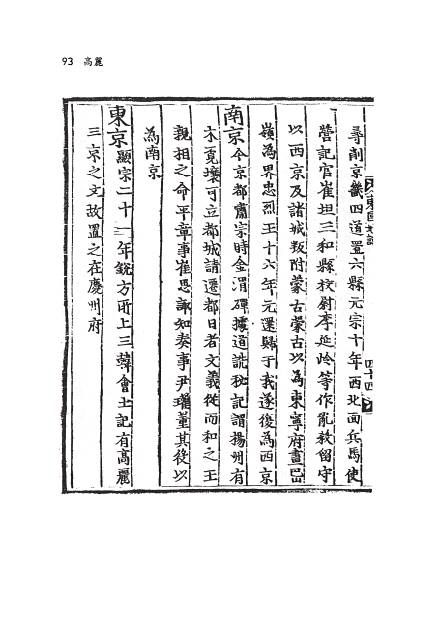 93 高麗
尋削京畿四道置六縣元宗十年西北面兵馬使
營記官崔坦三和縣校尉李延岭等作亂殺留守
以西京及諸城叛附蒙古蒙古以為東寧府畫
嶺為界忠烈王十六年元還歸于我遂復為西京
南京今京都肅宗時金渭磾據道詵秘記謂楊州有
木覓壤可立都城請遷都日者文義從而和之王
親相之命平章事崔思諏知奏事尹瓘董其役以
為南京
東京顯宗二十一年銳方所上三韓會土記有高麗
三京之文故置之在慶州府